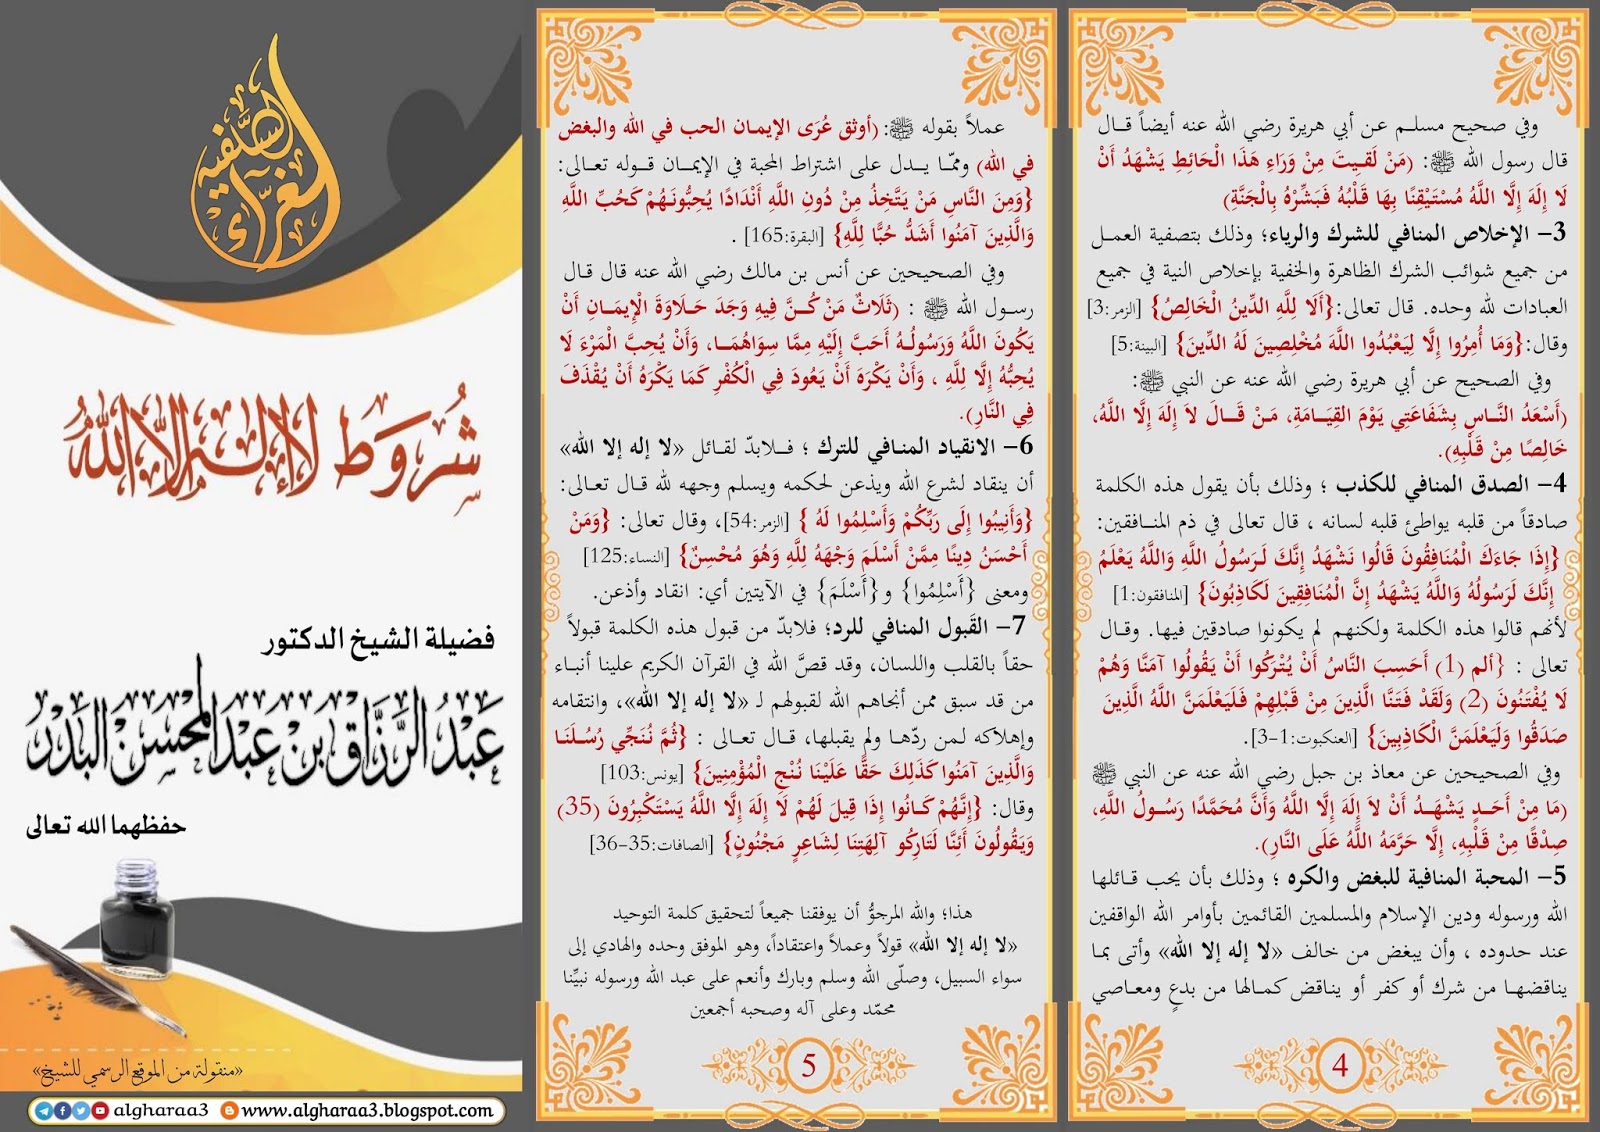 وفي صحيح مسلم عن أبي هريرة رضي الله عنه أيضاً قال
قال رسول الله ﷺ: (مَنْ لَقِيتَ مِنْ وَرَاءِ هَذَا الْحَائِطِ يَشْهَدُ أَنْ
لَا إِلَهَ إِلَّا اللَّهُ مُسْتَيْقِنًا بِهَا قَلْبُهُ فَبَشِّرْهُ بِالْجَنَّةِ)
3- الإخلاص المنافي للشرك والرياء؛ وذلك بتصفية العمل
من جميع شوائب الشرك الظاهرة والخفية بإخلاص النية في جميع
العبادات لله وحده. قال تعالى:{أَلَا لِلَّهِ الدِّينُ الْخَالِصُ} [الزمر:3]
وقال:{وَمَا أُمِرُوا إِلَّا لِيَعْبُدُوا اللَّهَ مُخْلِصِينَ لَهُ الدِّينَ} [البينة:5]
وفي الصحيح عن أبي هريرة رضي الله عنه عن النبي ﷺ:
(أَسْعَدُ النَّاسِ بِشَفَاعَتِي يَوْمَ القِيَامَةِ، مَنْ قَالَ لاَ إِلَهَ إِلَّا اللَّهُ،
خَالِصًا مِنْ قَلْبِهِ).
4- الصدق المنافي للكذب ؛ وذلك بأن يقول هذه الكلمة
صادقاً من قلبه يواطئ قلبه لسانه ، قال تعالى في ذم المنافقين:
{إِذَا جَاءَكَ الْمُنَافِقُونَ قَالُوا نَشْهَدُ إِنَّكَ لَرَسُولُ اللَّهِ وَاللَّهُ يَعْلَمُ
إِنَّكَ لَرَسُولُهُ وَاللَّهُ يَشْهَدُ إِنَّ الْمُنَافِقِينَ لَكَاذِبُونَ} [المنافقون:1]
لأنهم قالوا هذه الكلمة ولكنهم لم يكونوا صادقين فيها. وقال
تعالى : {ألم (1) أَحَسِبَ النَّاسُ أَنْ يُتْرَكُوا أَنْ يَقُولُوا آمَنَّا وَهُمْ
لَا يُفْتَنُونَ (2) وَلَقَدْ فَتَنَّا الَّذِينَ مِنْ قَبْلِهِمْ فَلَيَعْلَمَنَّ اللَّهُ الَّذِينَ
صَدَقُوا وَلَيَعْلَمَنَّ الْكَاذِبِينَ} [العنكبوت:1-3].
وفي الصحيحين عن معاذ بن جبل رضي الله عنه عن النبي ﷺ
(مَا مِنْ أَحَدٍ يَشْهَدُ أَنْ لاَ إِلَهَ إِلَّا اللَّهُ وَأَنَّ مُحَمَّدًا رَسُولُ اللَّهِ،
صِدْقًا مِنْ قَلْبِهِ، إِلَّا حَرَّمَهُ اللَّهُ عَلَى النَّارِ).
5- المحبة المنافية للبغض والكره ؛ وذلك بأن يحب قائلها
الله ورسوله ودين الإسلام والمسلمين القائمين بأوامر الله الواقفين
عند حدوده ، وأن يبغض من خالف «لا إله إلا الله» وأتى بما
يناقضها من شرك أو كفر أو يناقض كمالها من بدعٍ ومعاصي
4
عملاً بقوله ﷺ: (أوثق عُرَى الإيمان الحب في الله والبغض
في الله) وممّا يدل على اشتراط المحبة في الإيمان قوله تعالى:
{وَمِنَ النَّاسِ مَنْ يَتَّخِذُ مِنْ دُونِ اللَّهِ أَنْدَادًا يُحِبُّونَهُمْ كَحُبِّ اللَّهِ
وَالَّذِينَ آمَنُوا أَشَدُّ حُبًّا لِلَّهِ} [البقرة:165] .
وفي الصحيحين عن أنس بن مالك رضي الله عنه قال قال
رسول الله ﷺ : (ثَلَاثٌ مَنْ كُنَّ فِيهِ وَجَدَ حَلَاوَةَ الْإِيمَانِ أَنْ
يَكُونَ اللَّهُ وَرَسُولُهُ أَحَبَّ إِلَيْهِ مِمَّا سِوَاهُمَا، وَأَنْ يُحِبَّ الْمَرْءَ لَا
يُحِبُّهُ إِلَّا لِلَّهِ ، وَأَنْ يَكْرَهَ أَنْ يَعُودَ فِي الْكُفْرِ كَمَا يَكْرَهُ أَنْ يُقْذَفَ
فِي النَّارِ).
6- الانقياد المنافي للترك ؛ فلابدّ لقائل «لا إله إلا الله»
أن ينقاد لشرع الله ويذعن لحكمه ويسلم وجهه لله قال تعالى:
{وَأَنِيبُوا إِلَى رَبِّكُمْ وَأَسْلِمُوا لَهُ } [الزمر:54]، وقال تعالى: {وَمَنْ
أَحْسَنُ دِينًا مِمَّنْ أَسْلَمَ وَجْهَهُ لِلَّهِ وَهُوَ مُحْسِنٌ} [النساء:125]
ومعنى {أَسْلِمُوا} و{أَسْلَمَ} في الآيتين أي: انقاد وأذعن.
7- القَبول المنافي للرد؛ فلابدّ من قبول هذه الكلمة قبولاً
حقاً بالقلب واللسان، وقد قصَّ الله في القرآن الكريم علينا أنباء
من قد سبق ممن أنجاهم الله لقبولهم لـ «لا إله إلا الله»، وانتقامه
وإهلاكه لمن ردّها ولم يقبلها، قال تعالى : {ثُمَّ نُنَجِّي رُسُلَنَا
وَالَّذِينَ آمَنُوا كَذَلِكَ حَقًّا عَلَيْنَا نُنْجِ الْمُؤْمِنِينَ} [يونس:103]
وقال: {إِنَّهُمْ كَانُوا إِذَا قِيلَ لَهُمْ لَا إِلَهَ إِلَّا اللَّهُ يَسْتَكْبِرُونَ (35)
وَيَقُولُونَ أَئِنَّا لَتَارِكُو آلِهَتِنَا لِشَاعِرٍ مَجْنُونٍ} [الصافات:35-36]
هذا؛ والله المرجوُّ أن يوفقنا جميعاً لتحقيق كلمة التوحيد
«لا إله إلا الله» قولاً وعملاً واعتقاداً، وهو الموفق وحده والهادي إلى
سواء السبيل، وصلّى الله وسلم وبارك وأنعم على عبد الله ورسوله نبيِّنا
محمّد وعلى آله وصحبه أجمعين
5
السلفية
الغراء
شُرُوط لا إله إلا الله
فضيلة الشيخ الدكتور
عَبْدُ الرَّزَّاق بْن عَبْد المُحْسِن البَدْر
حفظهما الله تعالى
«منقولة من الموقع الرسمي للشيخ»
algharaa3 www.algharaa3.blogspot.com